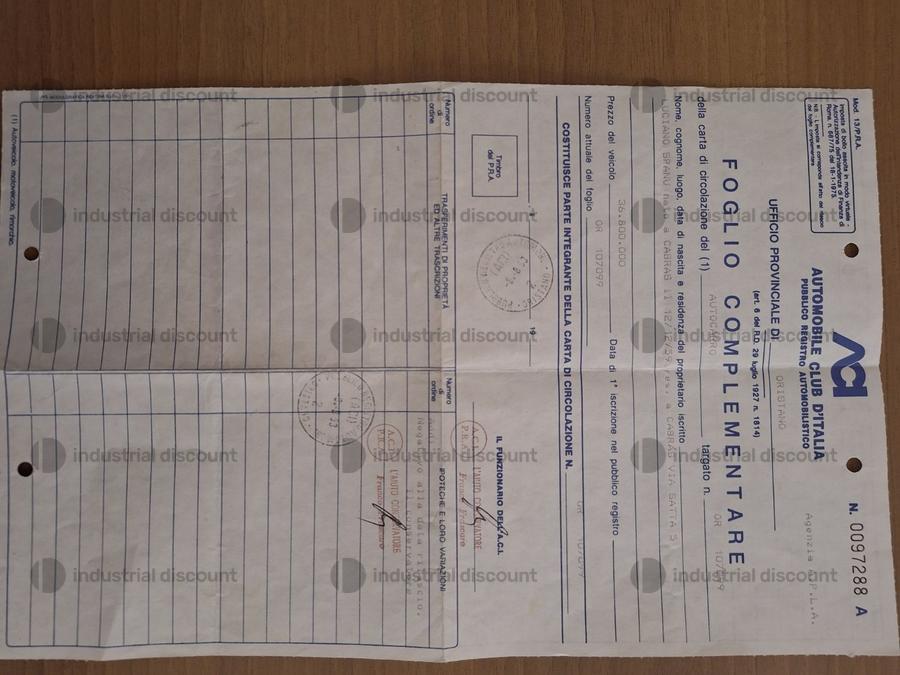 Mod. 13/P.R.A.
Imposta di bollo assolta in modo virtuale -
Autorizzazione dell'Intendenza di Finanza di
Roma, n. 687/75 del 18-1-1975.
ACI
AUTOMOBILE CLUB D'ITALIA
PUBBLICO REGISTRO AUTOMOBILISTICO
N. 0097288 A
UFFICIO PROVINCIALE DI ORISTANO
(art. 6 del R.D. 29 luglio 1927 n. 1814)
FOGLIO COMPLEMENTARE
della carta di circolazione del (1) AUTOCARRO targato n. OR 107099
Nome, cognome, luogo, data di nascita e residenza del proprietario iscritto
LUCIANO SPANU nato a CABRAS il 12/12/59 res. a CABRAS VIA SATTA 5
Prezzo del veicolo 36.800.000 Data di 1ª iscrizione nel pubblico registro
Numero attuale del foglio OR 107099
COSTITUISCE PARTE INTEGRANTE DELLA CARTA DI CIRCOLAZIONE N. OR 107099
19
Timbro
del P.R.A.
IL FUNZIONARIO DELL'A.C.I.
Numero
di
ordine
TRASFERIMENTI DI PROPRIETÀ
ED ALTRE TRASCRIZIONI
Numero
di
ordine
IPOTECHE E LORO VARIAZIONI
Negative alla data rilascio.
il conservatore
(1) Autoveicolo, motoveicolo, rimorchio.
industrial discount